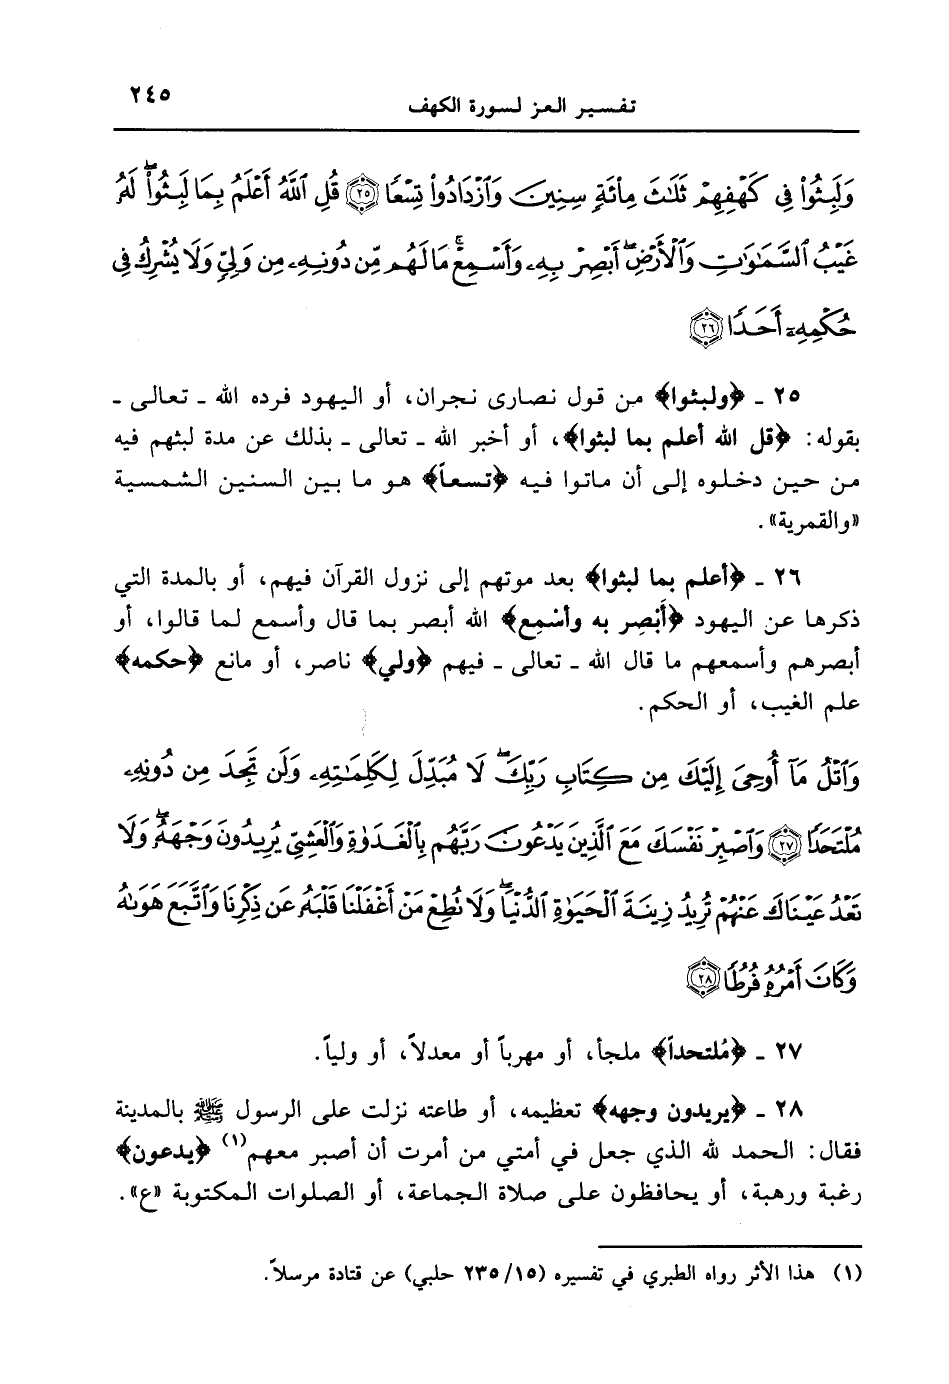 تفسير العز لسورة الكهف ٢٤٥
وَلَبِثُوا۟ فِى كَهْفِهِمْ ثَلَٰثَ مِا۟ئَةٍ سِنِينَ وَٱزْدَادُوا۟ تِسْعًا ۝٢٥ قُلِ ٱللَّهُ أَعْلَمُ بِمَا لَبِثُوا۟ ۖ لَهُۥ
غَيْبُ ٱلسَّمَٰوَٰتِ وَٱلْأَرْضِ ۖ أَبْصِرْ بِهِۦ وَأَسْمِعْ ۚ مَا لَهُم مِّن دُونِهِۦ مِن وَلِىٍّ وَلَا يُشْرِكُ فِى
حُكْمِهِۦٓ أَحَدًا ۝٢٦
٢٥ ـ ﴿ولبثوا﴾ من قول نصارى نجران، أو اليهود فرده الله ـ تعالى ـ
بقوله: ﴿قل الله أعلم بما لبثوا﴾، أو أخبر الله ـ تعالى ـ بذلك عن مدة لبثهم فيه
من حين دخلوه إلى أن ماتوا فيه ﴿تسعاً﴾ هو ما بين السنين الشمسية
«والقمرية».
٢٦ ـ ﴿أعلم بما لبثوا﴾ بعد موتهم إلى نزول القرآن فيهم، أو بالمدة التي
ذكرها عن اليهود ﴿أَبْصِر به وأسْمِع﴾ الله أبصر بما قال وأسمع لما قالوا، أو
أبصرهم وأسمعهم ما قال الله ـ تعالى ـ فيهم ﴿ولي﴾ ناصر، أو مانع ﴿حكمه﴾
علم الغيب، أو الحكم.
وَٱتْلُ مَآ أُوحِىَ إِلَيْكَ مِن كِتَابِ رَبِّكَ ۖ لَا مُبَدِّلَ لِكَلِمَٰتِهِۦ وَلَن تَجِدَ مِن دُونِهِۦ
مُلْتَحَدًا ۝٢٧ وَٱصْبِرْ نَفْسَكَ مَعَ ٱلَّذِينَ يَدْعُونَ رَبَّهُم بِٱلْغَدَوٰةِ وَٱلْعَشِىِّ يُرِيدُونَ وَجْهَهُۥ ۖ وَلَا
تَعْدُ عَيْنَاكَ عَنْهُمْ تُرِيدُ زِينَةَ ٱلْحَيَوٰةِ ٱلدُّنْيَا ۖ وَلَا تُطِعْ مَنْ أَغْفَلْنَا قَلْبَهُۥ عَن ذِكْرِنَا وَٱتَّبَعَ هَوَىٰهُ
وَكَانَ أَمْرُهُۥ فُرُطًا ۝٢٨
٢٧ ـ ﴿مُلتحداً﴾ ملجأ، أو مهرباً أو معدلاً، أو ولياً.
٢٨ ـ ﴿يريدون وجهه﴾ تعظيمه، أو طاعته نزلت على الرسول ﷺ بالمدينة
فقال: الحمد لله الذي جعل في أمتي من أمرت أن أصبر معهم(١) ﴿يدعون﴾
رغبة ورهبة، أو يحافظون على صلاة الجماعة، أو الصلوات المكتوبة «ع».
(١) هذا الأثر رواه الطبري في تفسيره (١٥/ ٢٣٥ حلبي) عن قتادة مرسلاً.